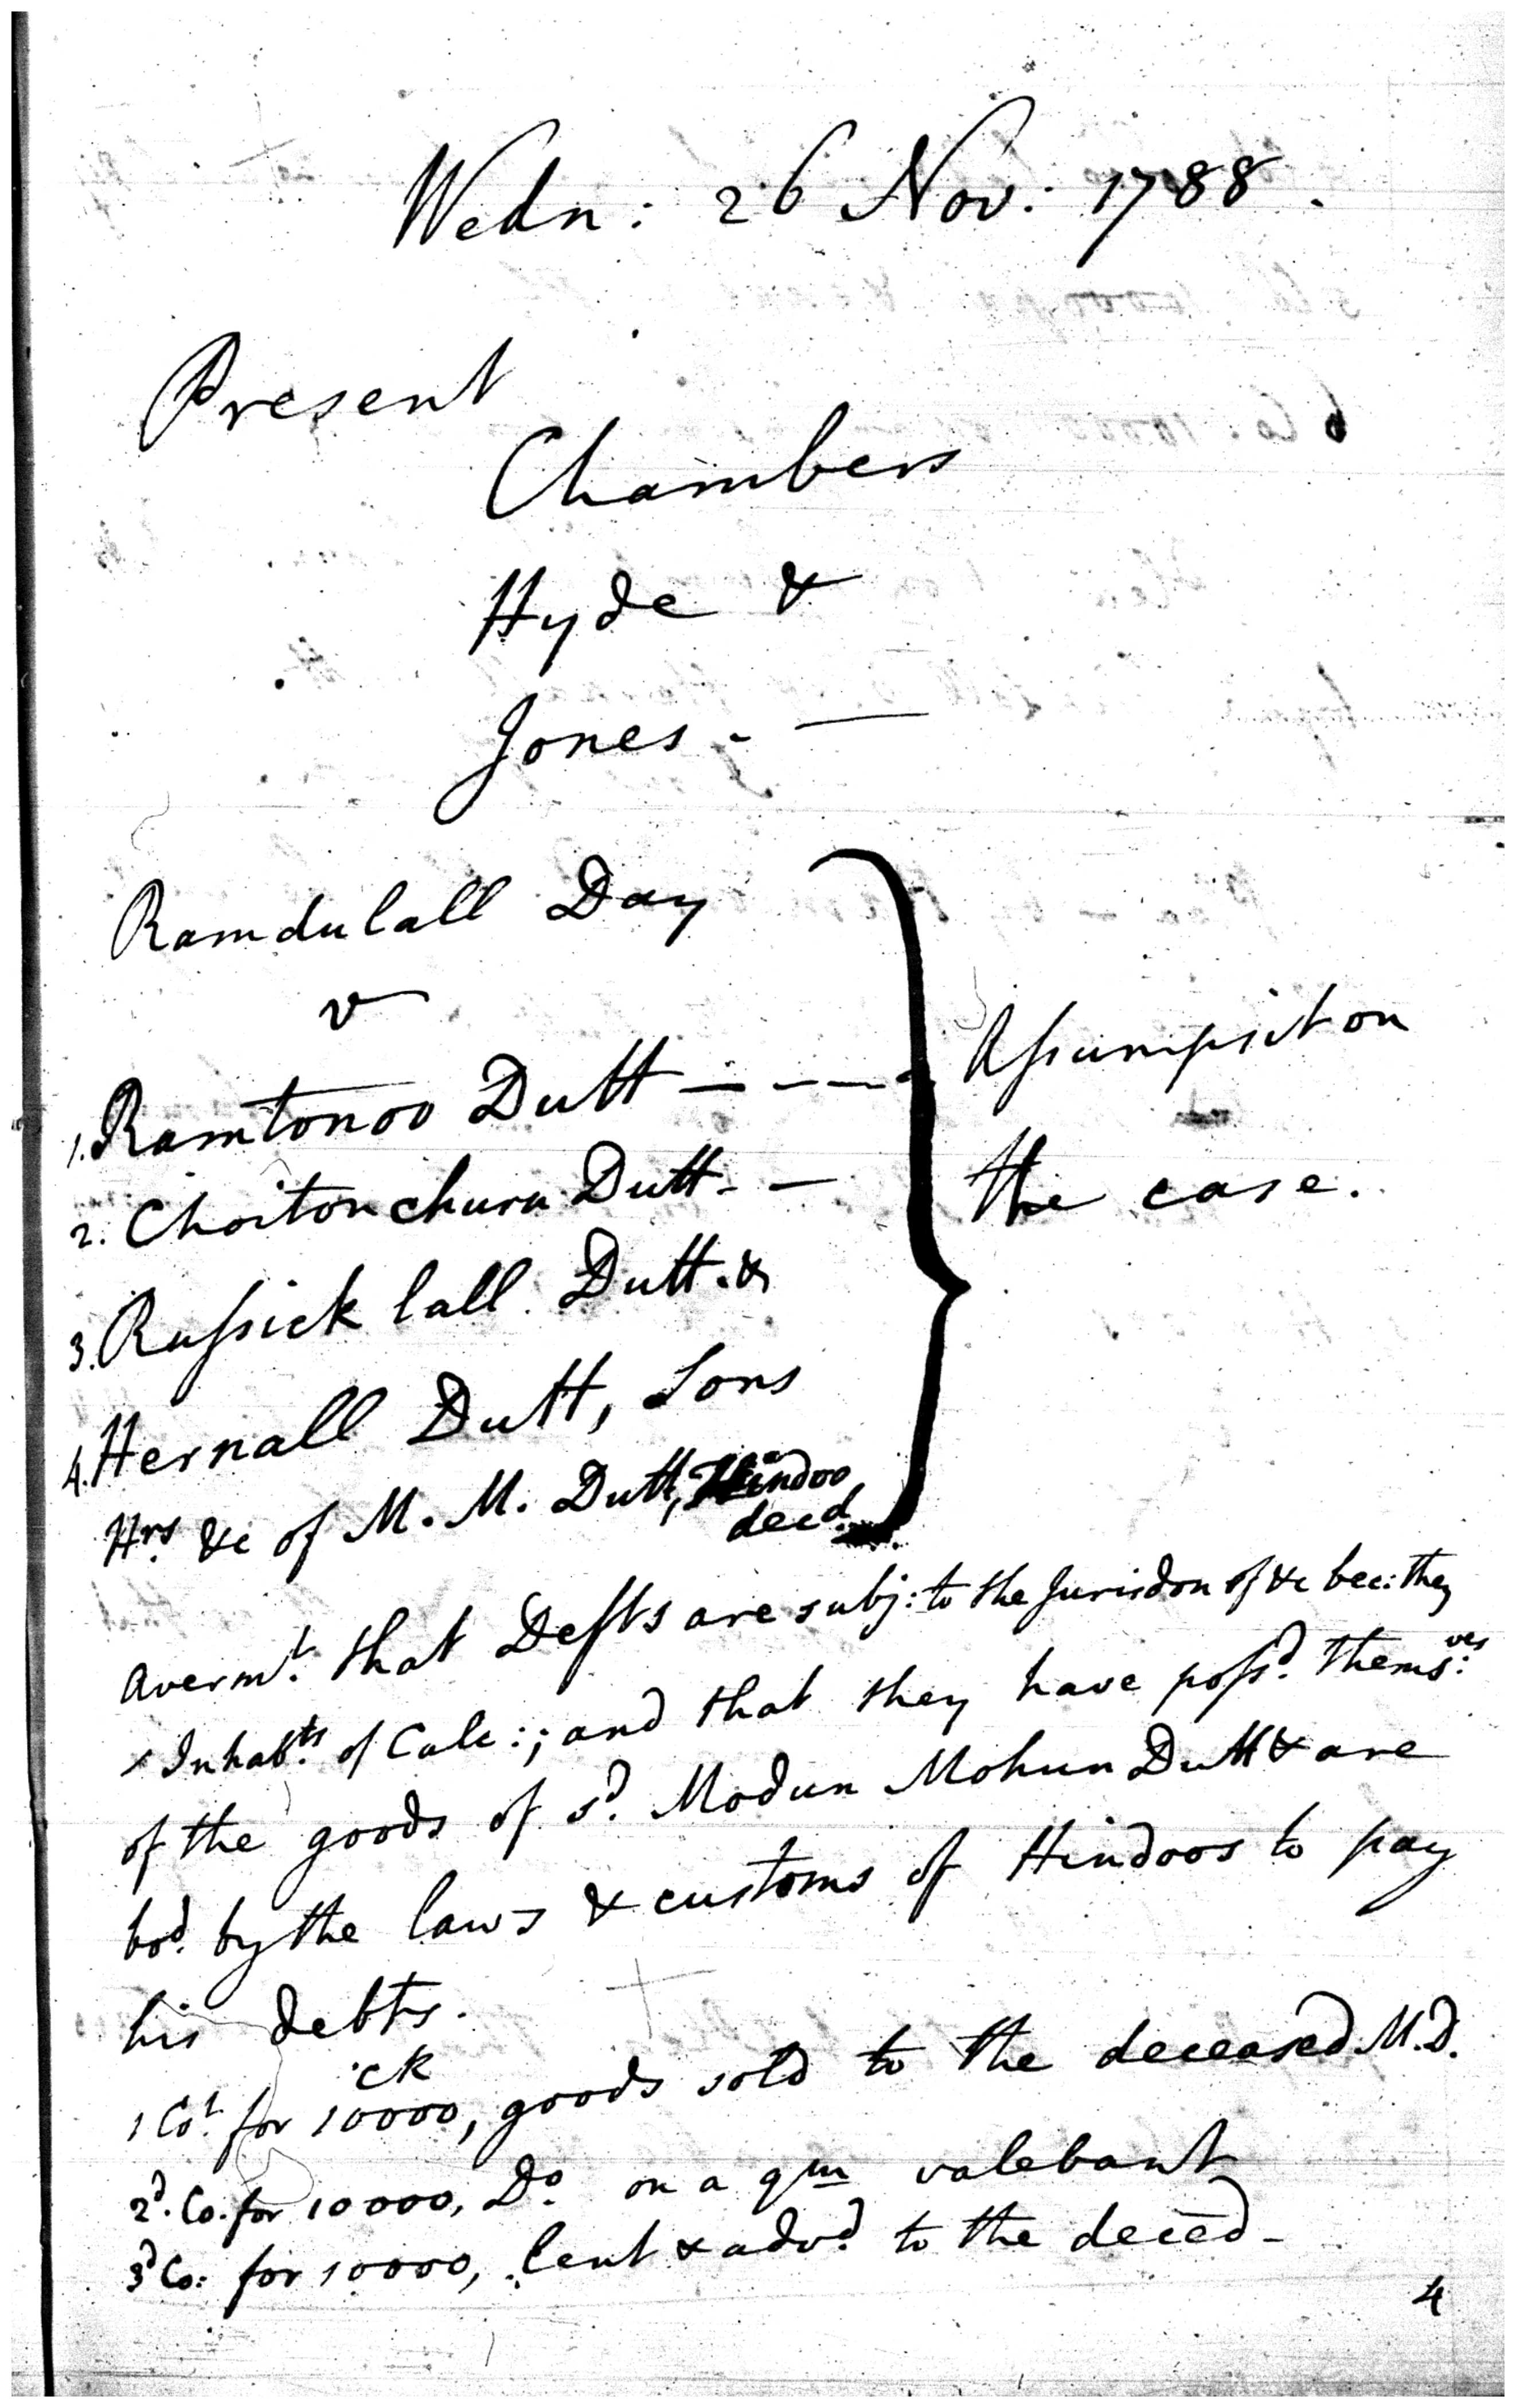 Wedn: 26 Nov: 1788.
Present
Chambers
Hyde &
Jones. —
Ramdulall Day
v
1. Ramtonoo Dutt - - - -
Assumpsit on
2. Choitonchurn Dutt - -
the case.
3. Russick lall Dutt. &
4. Hernall Dutt, Sons
Hrs. &c of M. M. Dutt, Hindoo
decd.
Avermt. that Defts are subj: to the Jurisdon of &c bec: they
x Inhabts. of Calc:; and that they have possd. thems:ves
of the goods of sd. Modun Mohun Dutt & are
bod. by the laws & customs of Hindoos to pay
his debts.
ck
1 Cot. for 10000, goods sold to the deceased M.D.
2d. Co. for 10000, Do. on a qm valebant
3d Co: for 10000, lent & advd. to the deced -
4